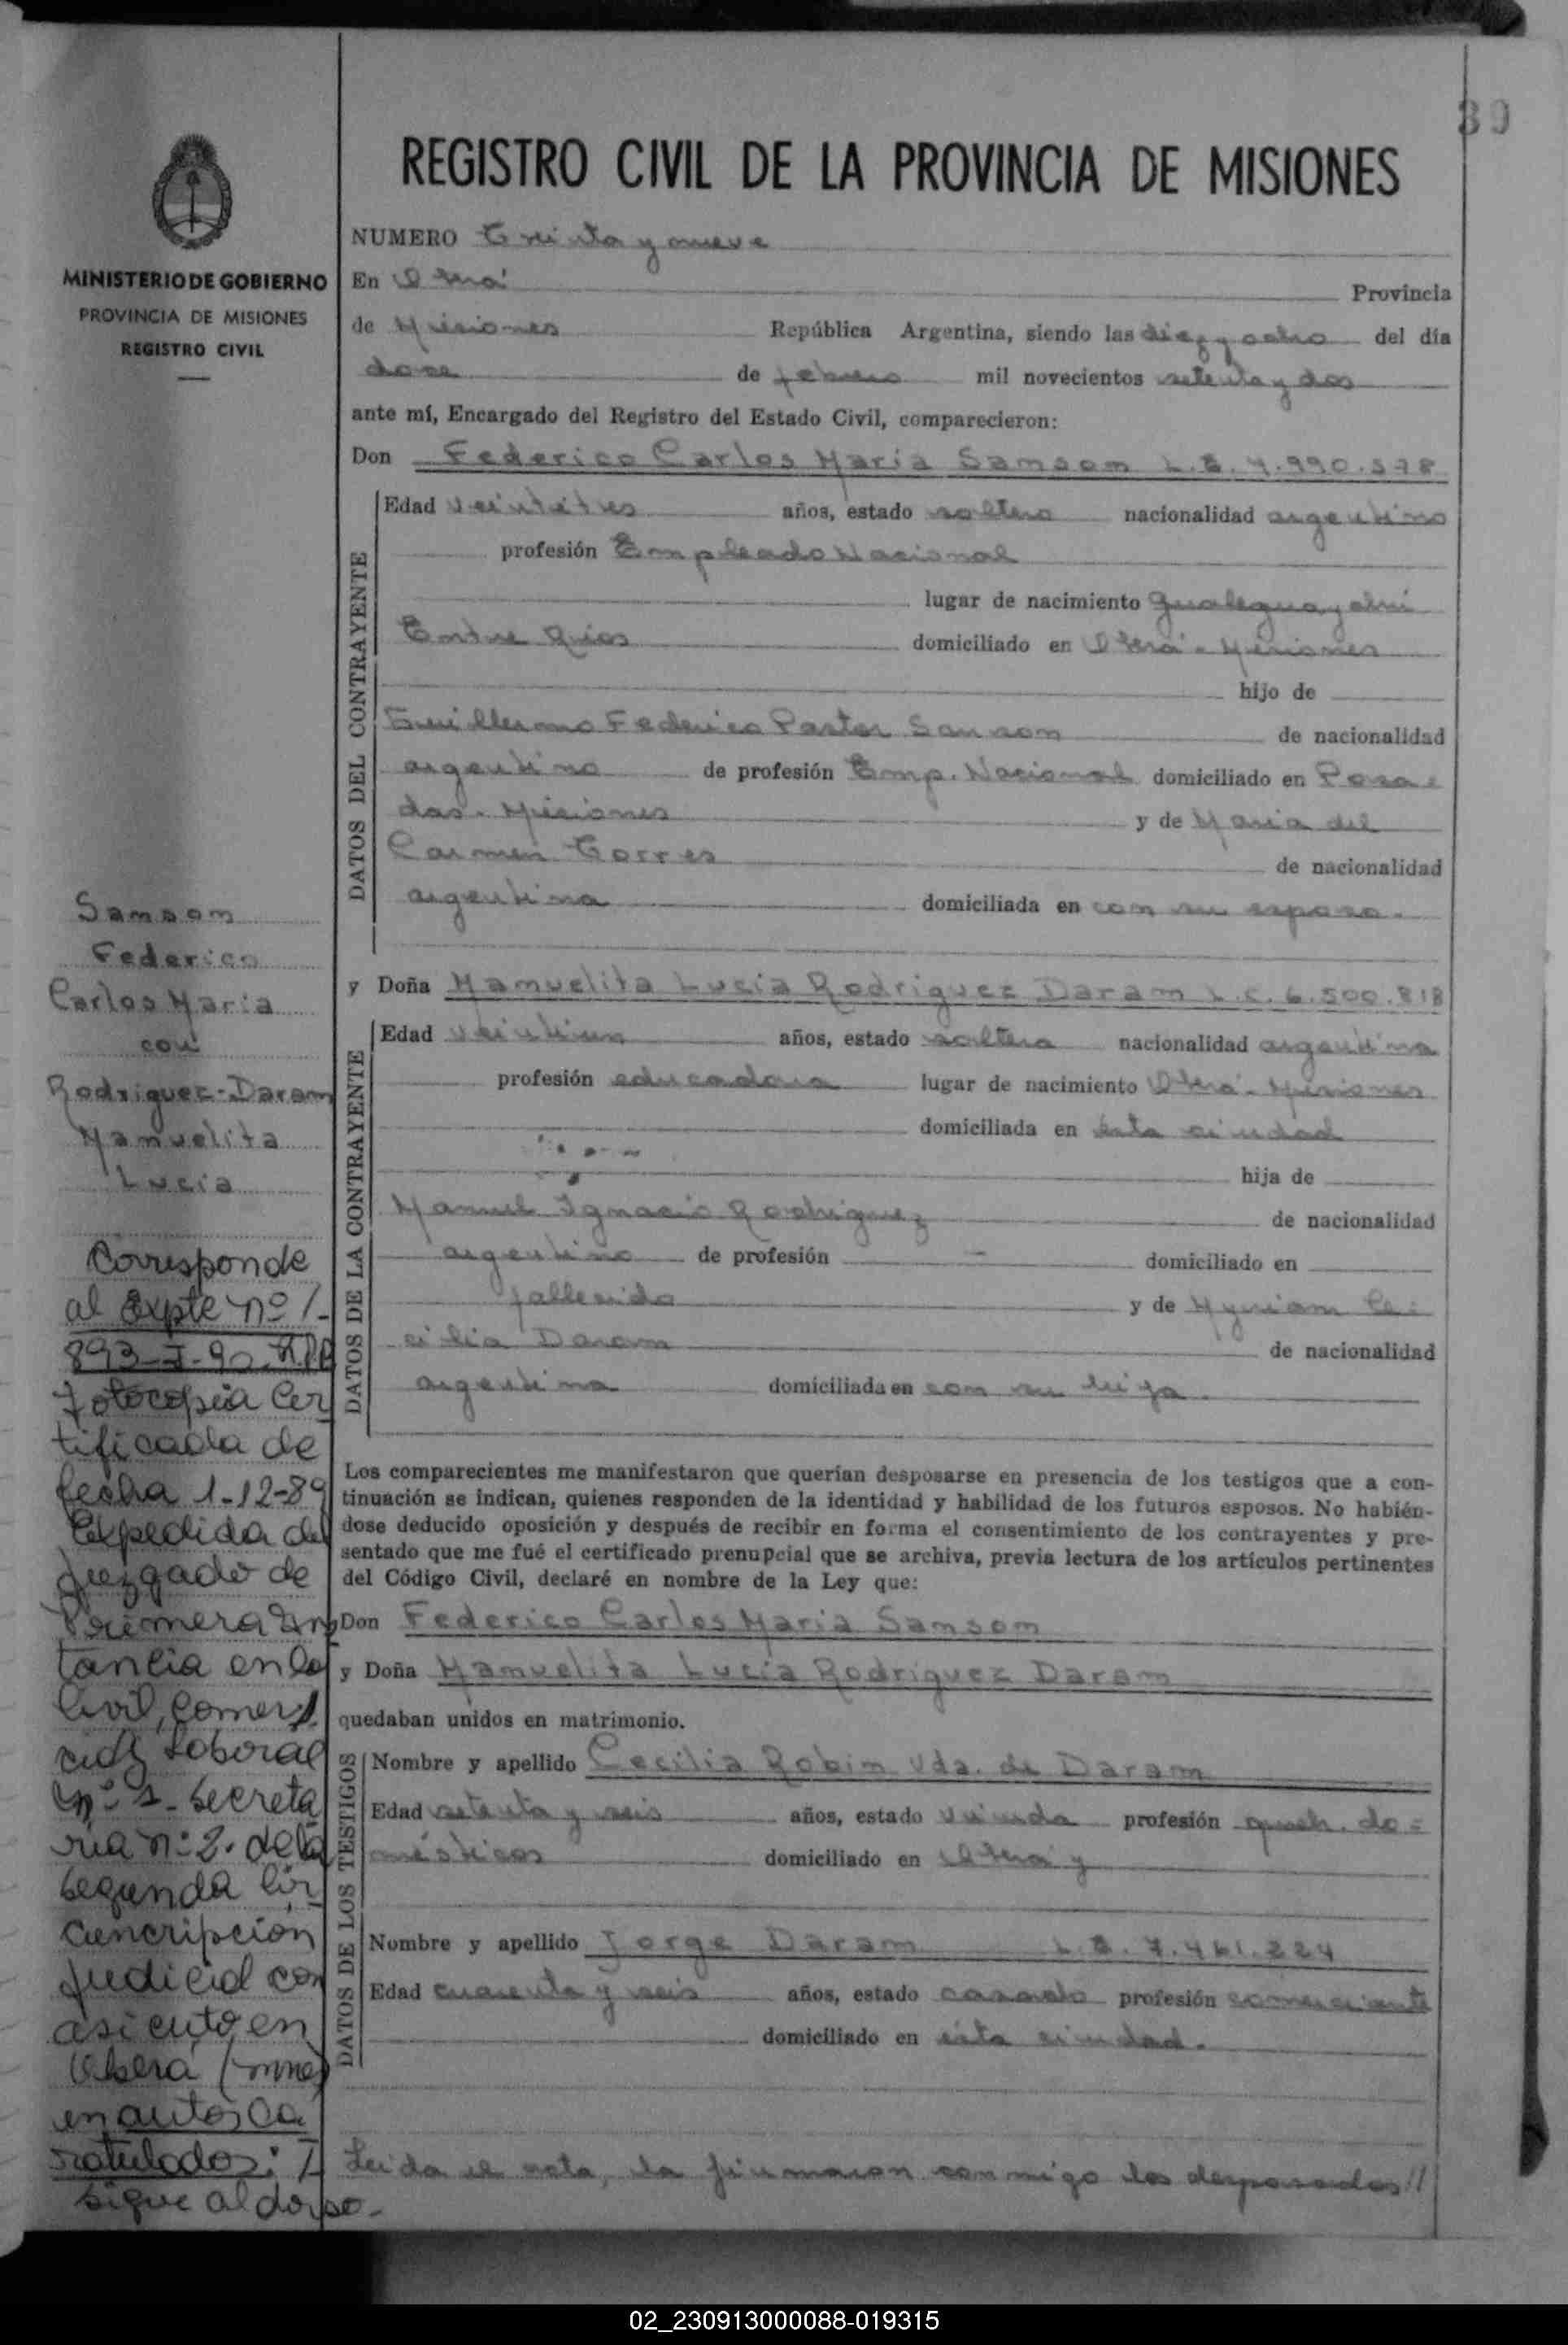 39
REGISTRO CIVIL DE LA PROVINCIA DE MISIONES
MINISTERIO DE GOBIERNO
PROVINCIA DE MISIONES
REGISTRO CIVIL
NUMERO Treinta y nueve
En Oberá Provincia
de Misiones República Argentina, siendo las diez y ocho del día
doce de febrero mil novecientos setenta y dos
ante mí, Encargado del Registro del Estado Civil, comparecieron:
Don Federico Carlos María Samsom L.E. 7.990.578
DATOS DEL CONTRAYENTE
Edad veintitres años, estado soltero nacionalidad argentino
profesión Empleado Nacional
lugar de nacimiento Gualeguaychú
Entre Ríos domiciliado en Oberá - Misiones
hijo de
Guillermo Federico Pastor Samsom de nacionalidad
argentino de profesión Emp. Nacional domiciliado en Posa-
das - Misiones y de María del
Carmen Torres de nacionalidad
argentina domiciliada en con su esposo.
y Doña Manuelita Lucía Rodriguez Daram L.C. 6.500.818
DATOS DE LA CONTRAYENTE
Edad veintiun años, estado soltera nacionalidad argentina
profesión educadora lugar de nacimiento Oberá - Misiones
domiciliada en ésta ciudad
hija de
Manuel Ignacio Rodriguez de nacionalidad
argentino de profesión - domiciliado en
fallecido y de Myriam Ce-
cilia Daram de nacionalidad
argentina domiciliada en con su hija.
Los comparecientes me manifestaron que querían desposarse en presencia de los testigos que a con-
tinuación se indican, quienes responden de la identidad y habilidad de los futuros esposos. No habién-
dose deducido oposición y después de recibir en forma el consentimiento de los contrayentes y pre-
sentado que me fué el certificado prenupcial que se archiva, previa lectura de los artículos pertinentes
del Código Civil, declaré en nombre de la Ley que:
Don Federico Carlos María Samsom
y Doña Manuelita Lucía Rodriguez Daram
quedaban unidos en matrimonio.
DATOS DE LOS TESTIGOS
Nombre y apellido Cecilia Robin Vda. de Daram
Edad setenta y seis años, estado viuda profesión queh. do-
mésticos domiciliado en Oberá y
Nombre y apellido Jorge Daram L.E. 7.461.224
Edad cuarenta y seis años, estado casado profesión comerciante
domiciliado en ésta ciudad.
Leída el acta, la firmaron conmigo los desposados //
Samsom
Federico
Carlos María
con
Rodriguez-Daram
Manuelita
Lucía
Corresponde
al Expte nº 1-
893-I-90
Fotocopia Cer
tificada de
fecha 1-12-89
Expedida del
Juzgado de
Primera Ins
tancia en lo
Civil, comer
cial y Laboral
nº 1- Secreta
ria nº 2. de la
segunda Cir
cuncripción
Judicial con
asiento en
Oberá (mnes)
en autos Ca
ratulados: I
sigue al dorso-
02_230913000088-019315